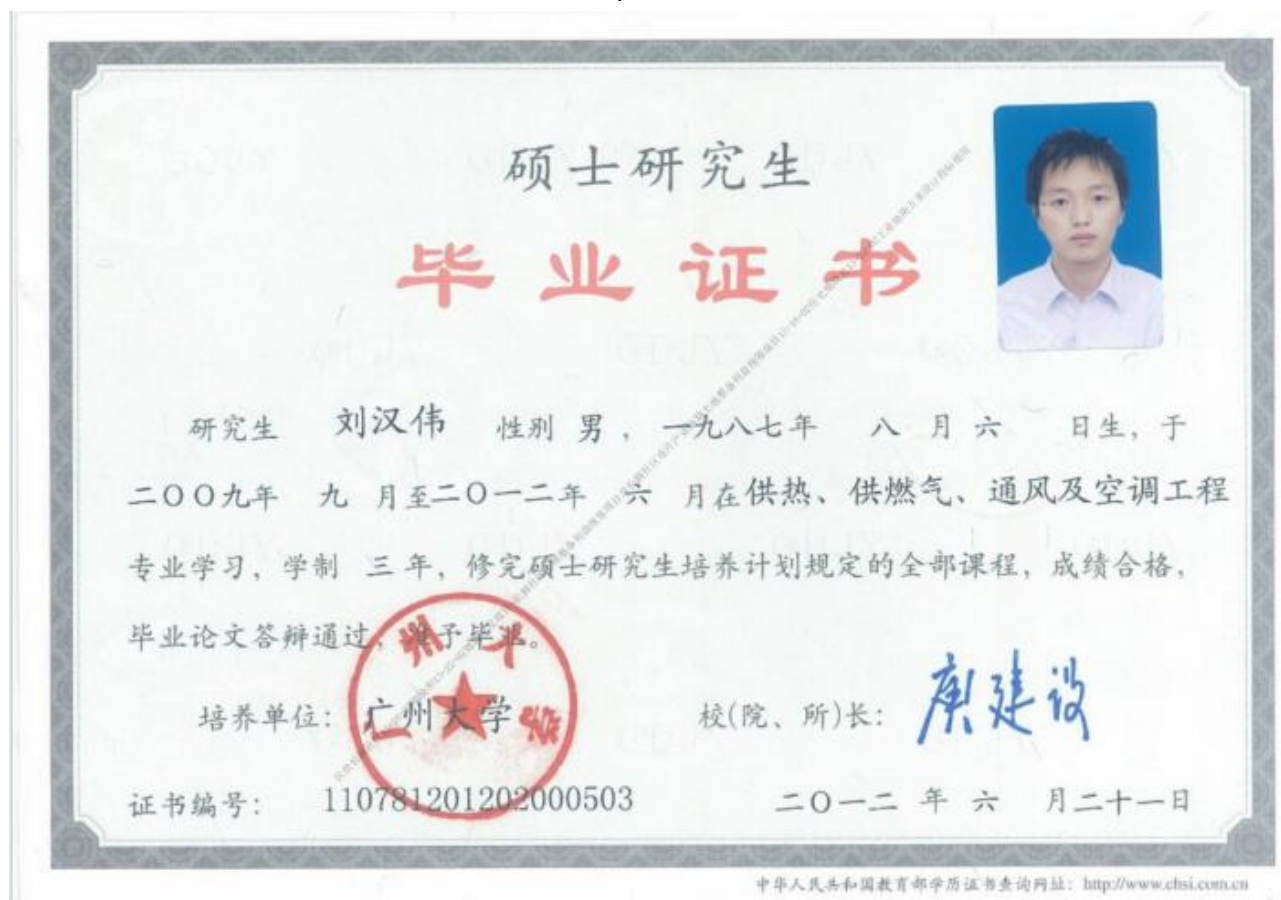 硕士研究生
毕业证书
研究生 刘汉伟 性别 男，一九八七年 八 月 六 日生，于
二〇〇九年 九 月至二〇一二年 六 月在供热、供燃气、通风及空调工程
专业学习，学制 三 年，修完硕士研究生培养计划规定的全部课程，成绩合格，
毕业论文答辩通过，准予毕业。
培养单位：广州大学 校(院、所)长：庾建设
广州大学
证书编号：110781201202000503 二〇一二 年 六 月二十一日
中华人民共和国教育部学历证书查询网址：http://www.chsi.com.cn